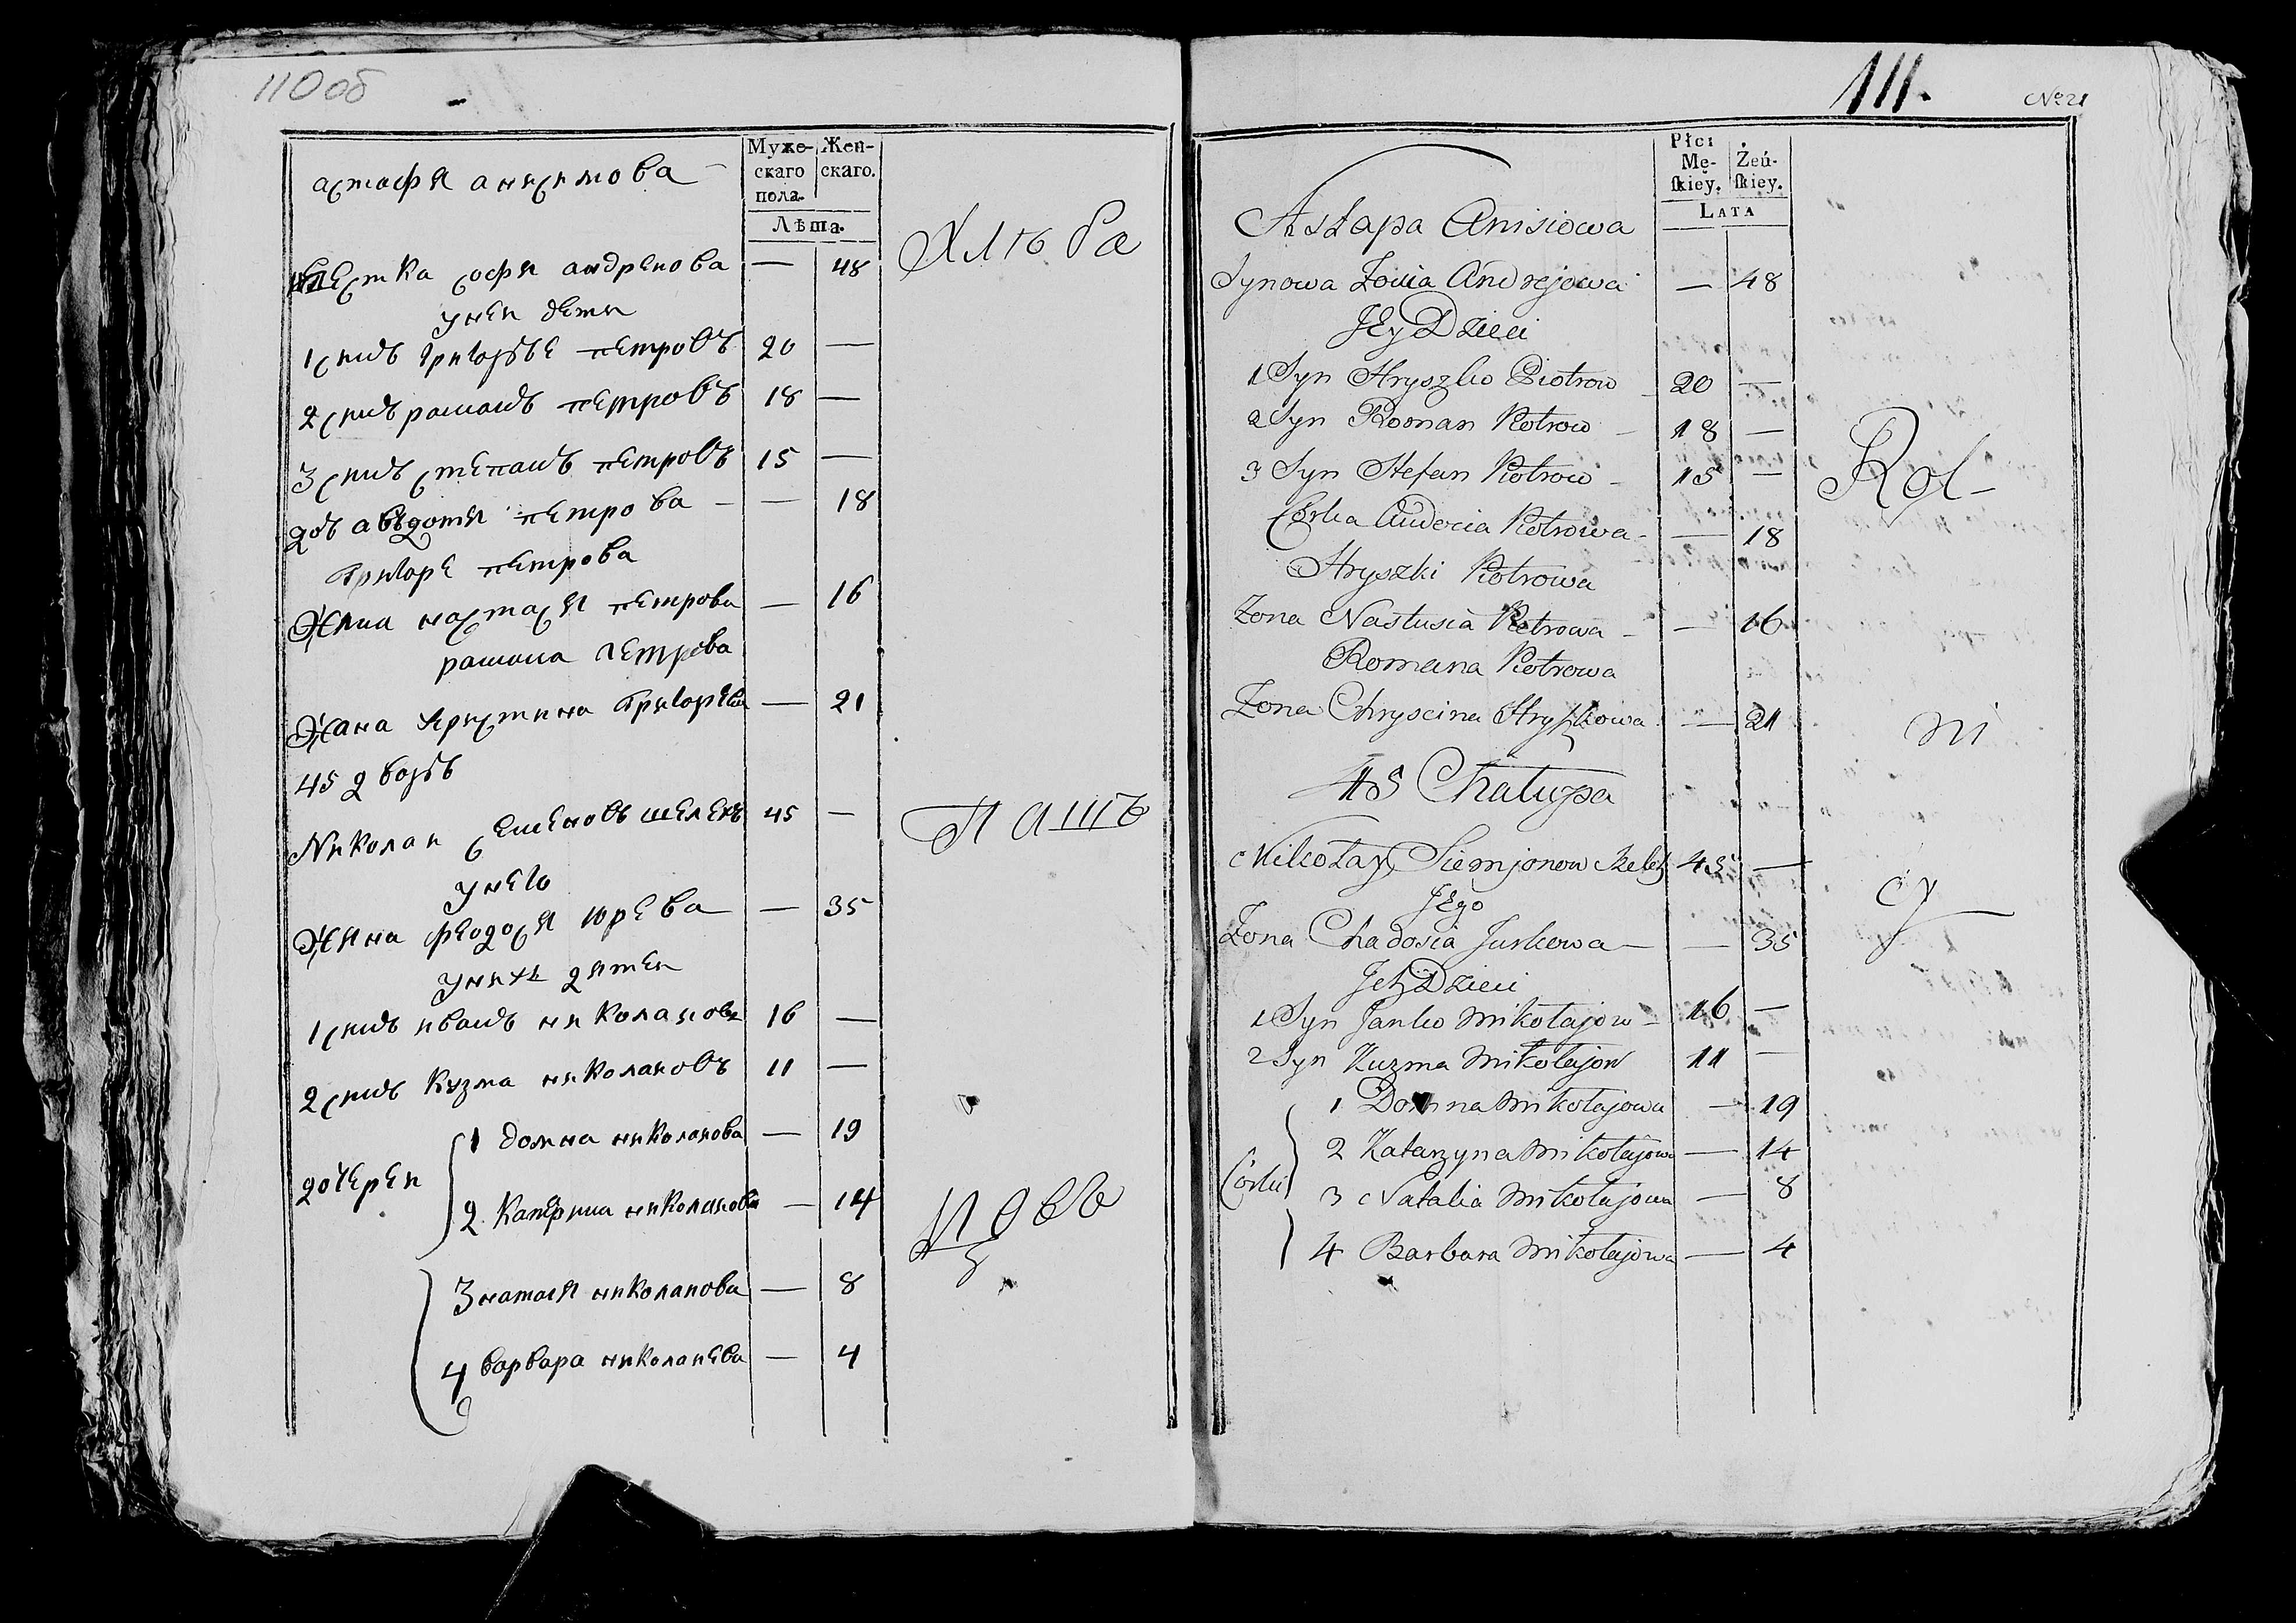 110 об
Муже-
скаго
пола.
Жен-
скаго.
Лѣта.
астафя анисимова —
невестка софя андреева — 48
унеи дети
1 синъ григорье петровъ 20 —
2 синъ раманъ петровъ 18 —
3 синъ степанъ петровъ 15 —
дочъ авъдотя петрова — — 18
григоре петрова
Жана настася петрова — 16
рамана петрова
Жана христина григорева — 21
45 дворъ
Николаи семеновъ шелехъ 45 —
унего
Жена феодося юрева — 35
унихъ дятеи
1 синъ иванъ николаиовъ 16 —
2 синъ кузма николаиовъ 11 —
дочереи
1 домна николаиова — 19
2 катерина николаиова — 14
3 наталя николаиова — 8
4 варвара николаиева — 4
Хлѣба
пашъ
цовъ
111.
No 21
Płci
Mę-
ſkieỹ.
Żeń-
ſkiey.
Lata
Astapa Anisiowa
Synowa Zonia Andrejowa — 48
Jey Dzieci
1 Syn Hryszko Piotrow 20 —
2 Syn Roman Piotrow — 18 —
3 Syn Stefan Piotrow — 15 —
Corka Audocia Piotrowa — — 18
Hryszki Piotrowa
Zona Nastusia Pietrowa — — 16
Romana Piotrowa
Zona Chryscina Hryszkowa — 21
45 Chałupa
Mikołay Siemjonow Szelech 45 —
Jego
Zona Chadosia Jurkowa — — 35
Ich Dzieci
1 Syn Janko Mikołajow — 16 —
2 Syn Kuzma Mikołajow 11 —
Corki
1 Domna Mikołajowa — 19
2 Katarzyna Mikołajowa — 14
3 Natalia Mikołajowa — 8
4 Barbara Mikołajowa — 4
Rol-
ni
cy